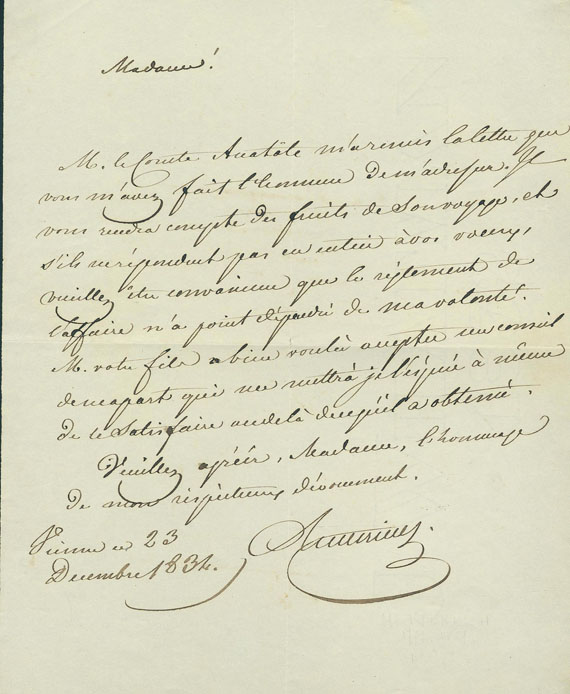 Madame!
M. le Comte Anatôle m'a remis la lettre que
vous m'avez fait l'honneur de m'adresser. Il
vous rendra compte des fruits de son voyage, et
s'ils ne répondent pas en entier à vos voeux,
veuillez être convaincue que le réglement de
l'affaire n'a point dépendu de ma volonté.
M. votre fils a bien voulu accepter un conseil
de ma part qui me mettra je l'éspère à même
de le satisfaire au delà de ce qu'il a obtenu.
Veuillez agréer, Madame, l'hommage
de mon réspectueux dévouement.
Vienne ce 23
Decembre 1834.